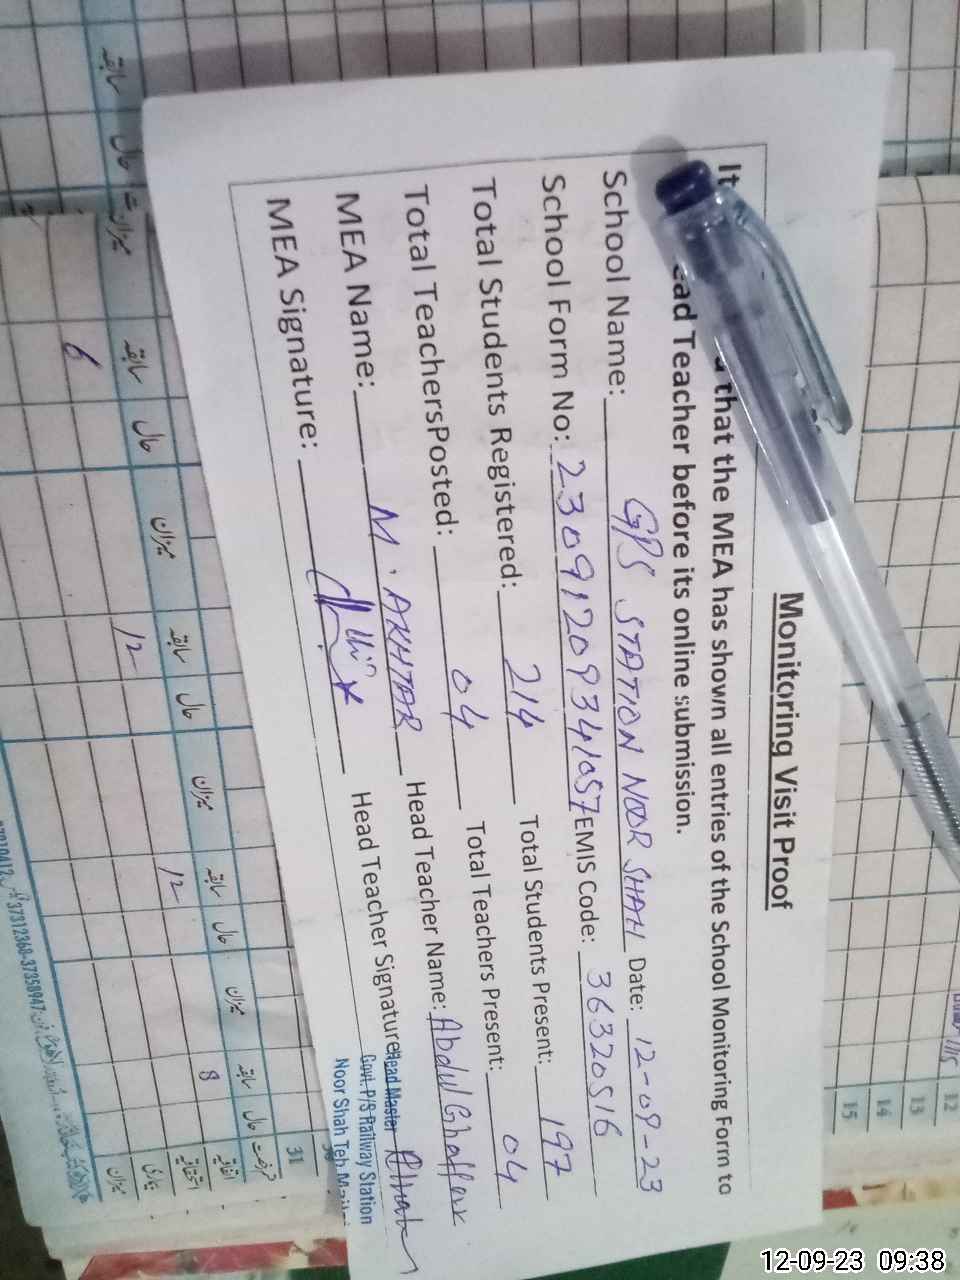 Monitoring Visit Proof
that the MEA has shown all entries of the School Monitoring Form to
ead Teacher before its online submission.
School Name: GPS STATION NOOR SHAH Date: 12-09-23
School Form No: 23091209341057 EMIS Code: 36320516
Total Students Registered: 214 Total Students Present: 197
Total TeachersPosted: 04 Total Teachers Present: 04
MEA Name: M. AKHTAR Head Teacher Name: Abdul Ghaffar
MEA Signature: Head Teacher Signature:
Head Master
Govt. P/S Railway Station
Noor Shah Teh.
سابقہ حال میزان سابقہ حال میزان سابقہ حال میزان سابقہ حال میزان سابقہ حال
6 12 12 8
12
13
14
15
31
37312360-37358947
12-09-23 09:38